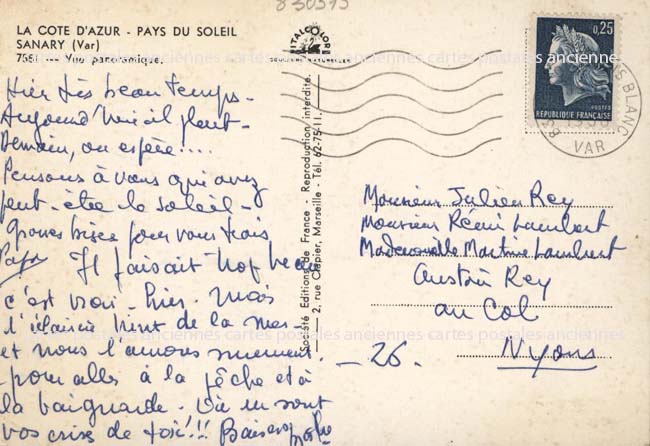 830515
LA COTE D'AZUR - PAYS DU SOLEIL
SANARY (Var)
Vue panoramique.
ITALCOLORE
Hier très beau temps -
Aujourd'hui il pleut -
Demain, on espère ...
Pensons à vous qui avez
peut-être le soleil -
Grosses bises pour vous trois
Papy Il faisait trop beau
c'est vrai - hier. Mais
l'éclaircie vient de la mer
et nous l'aurons sûrement.
pour aller à la pêche et à
la baignade. Où en sont
vos crises de foie!!! Baisers
Société Editions de France - Reproduction interdite.
2, rue Clapier, Marseille - Tél. 62-75-11.
0,25
POSTES
REPUBLIQUE FRANÇAISE
BLANC
VAR
Monsieur Julien Rey
Monsieur Rémi Lambert
Mademoiselle Martine Lambert
Rey
au Col
- 26 - Nyons
cartes postales anciennes cartes postales anciennes